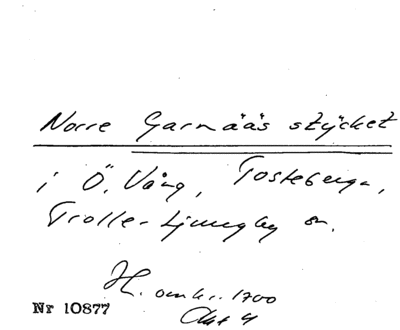 Norre Garnääs stycket
i Ö. Vång, Tosteberga,
Trolle-Ljungby sn.
H. omkr. 1700
Akt 4
Nr 10877